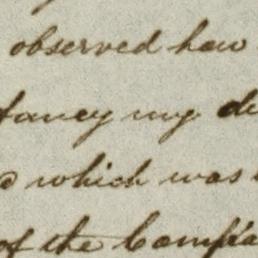 observed how
fancy my de
which was
of the Compa